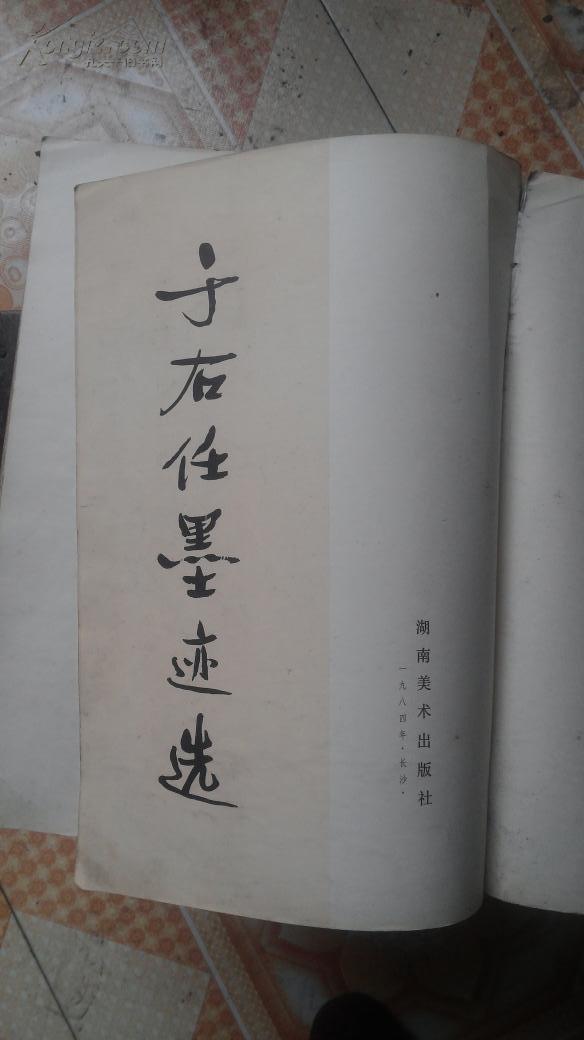 于右任墨迹选
湖南美术出版社
一九八四年·长沙·
Kongfz.com
孔夫子旧书网